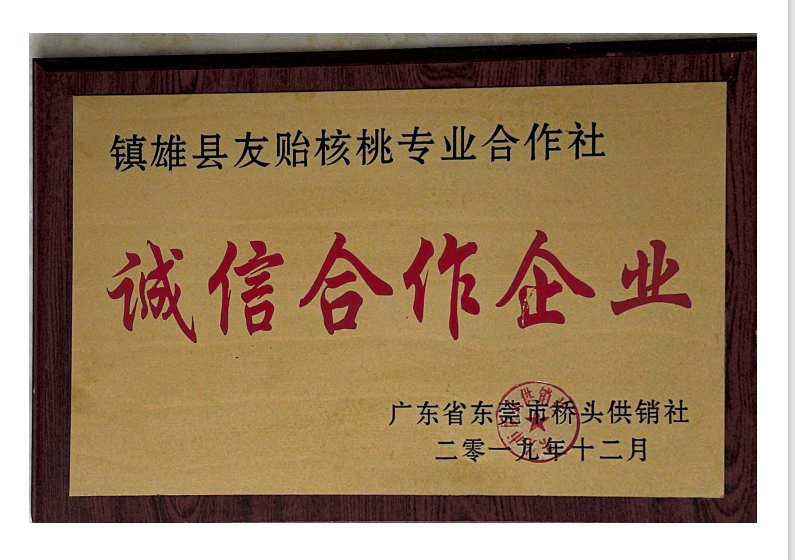 镇雄县友贻核桃专业合作社
诚信合作企业
广东省东莞市桥头供销社
二零一九年十二月